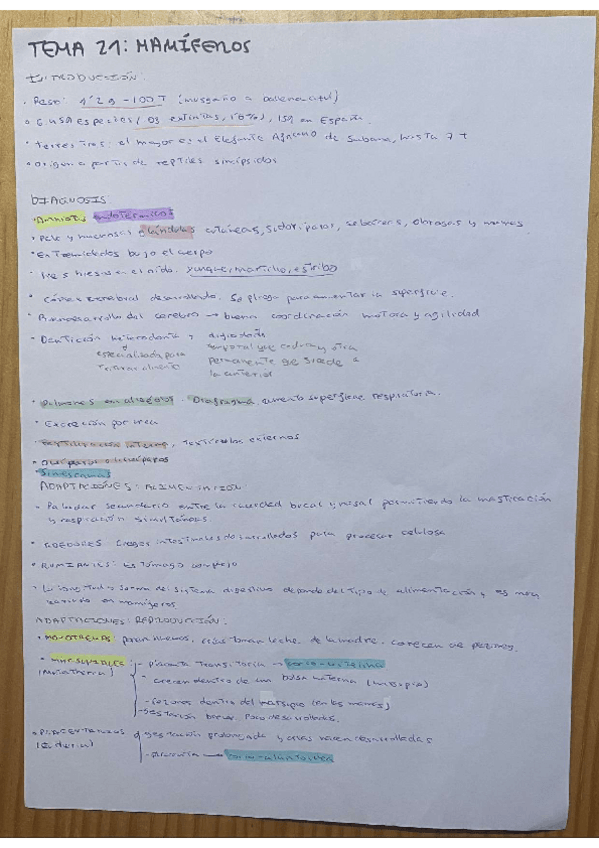 TEMA 21: MAMÍFEROS
INTRODUCCIÓN:
· Peso: 1'2g - 100T (musgaño - ballena azul)
especies ( extintas, ), en España
· terrestres: el mayor es el Elefante Africano de Sabana, hasta 7 t
· Origen a partir de reptiles sinápsidos
DIAGNOSIS
· Amniotas endotérmicos
· Pelo y numerosas glándulas cutáneas, sudoríparas, sebáceas, odoríferas y mamas
· Extremidades bajo el cuerpo
· Tres huesos en el oído. yunque, martillo, estribo
· Córtex cerebral desarrollado. Se pliega para aumentar la superficie.
· desarrollo del cerebro → buena coordinación motora y agilidad
· Dentición heterodonta y difiodonta
especialización para temporal que caduca y otra
alimento permanente que sucede a
la anterior
· Pulmones con alveolos. Diafragma. aumenta superficie respiratoria.
· Excreción por urea
· Fertilización interna, testículos externos
· Ovíparos o vivíparos
Sinapomorfias
ADAPTACIONES: ALIMENTACIÓN
· Paladar secundario entre la cavidad bucal y nasal permitiendo la masticación
y respiración simultáneas
· ROEDORES ciegos intestinales desarrollados para procesar celulosa
· RUMIANTES: Estómago complejo
· La longitud y forma del sistema digestivo depende del tipo de alimentación y es muy
en mamíferos
ADAPTACIONES: REPRODUCCIÓN.
· MONOTREMAS: ponen huevos, crías toman leche de la madre. carecen de pezones.
· MARSUPIALES: - placenta transitoria → corio-vitelina
(Metatheria) - crecen dentro de una bolsa materna (marsupio)
- pezones dentro del marsupio (en las mamas)
- Gestación breve. Poco desarrollados.
· PLACENTARIOS gestación prolongada y crías nacen desarrolladas
(Eutheria) - placenta → corio-alantoidea